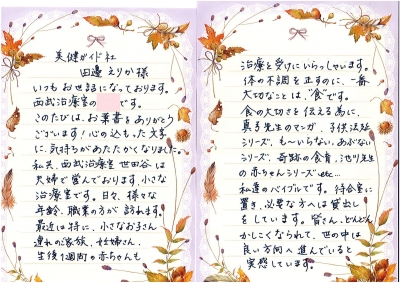 美健ガイド社
田邊えりか様
いつもお世話になっております。
西武治療室の です。
このたびは、お葉書をありがとう
ございます！心の込もった文字
に、気持ちがあたたかくなりました。
私共、西武治療室 世田谷は
夫婦で営んでおります、小さな
治療室です。日々、様々な
年齢、職業の方が訪れます。
最近は特に、小さなお子さん
連れの家族、妊婦さん、
生後1週間の赤ちゃんも
治療を受けにいらっしゃいます。
体の不調を正すのに、一番
大切なことは、"食"です。
食の大切さを伝える為に、
真弓先生のマンガ、子供法廷
シリーズ、も〜いらない、あぶない
シリーズ、奇跡の食育、池川先生
の赤ちゃんシリーズetc...
私達のバイブルです。待合室に
置き、必要な方へは貸出し
をしています。皆さん、どんどん
かしこくなられて、世の中は
良い方向へ進んでいると
実感しています。